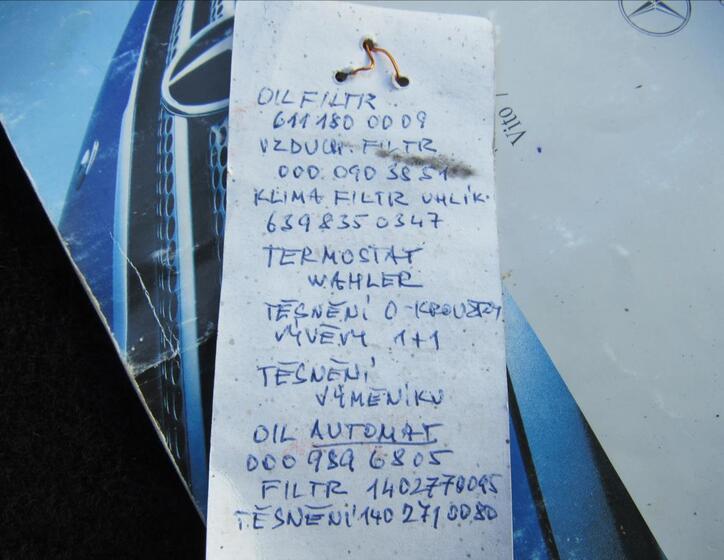 OIL FILTR
611 180 0009
VZDUCH. FILTR
000 090 3851
KLIMA FILTR UHLÍK.
639 835 0347
TERMOSTAT
WAHLER
TĚSNĚNÍ O-KROUŽKY
VÝVĚVY 1+1
TĚSNĚNÍ
VÝMĚNÍKU
OIL AUTOMAT
000 989 6805
FILTR 1402770095
TĚSNĚNÍ 140 271 0080
Vito /